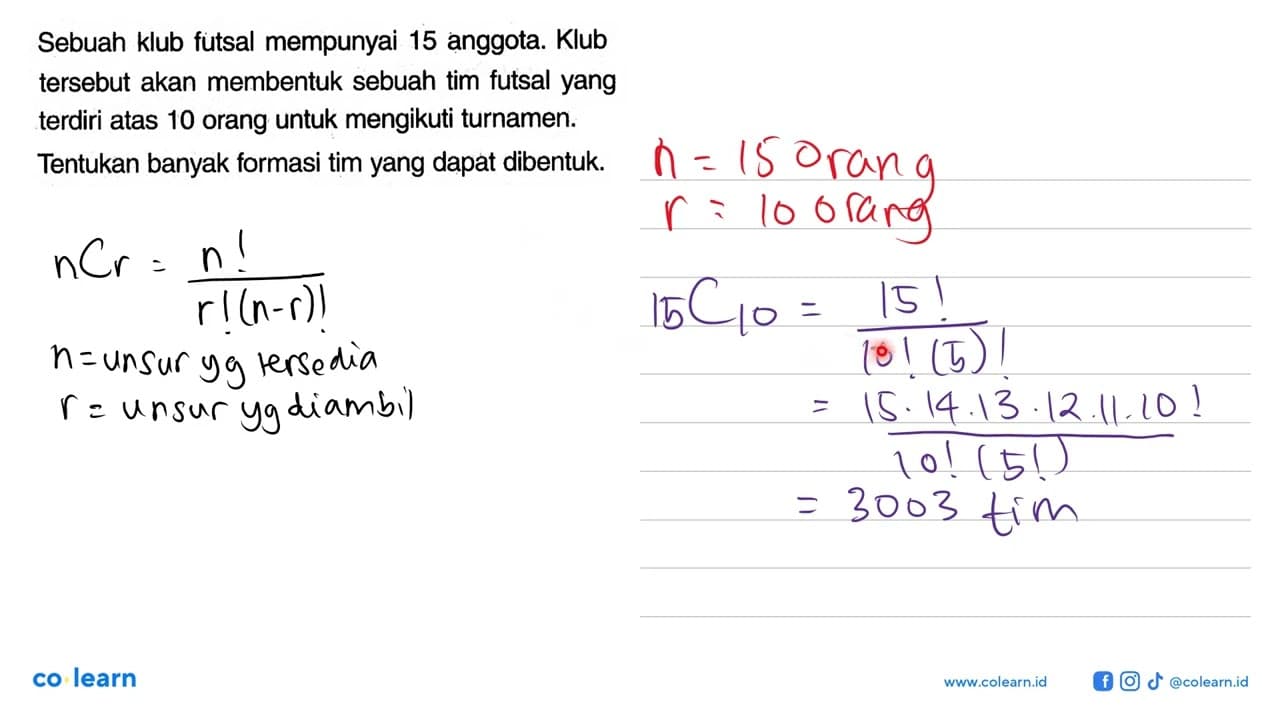 Sebuah klub futsal mempunyai 15 anggota. Klub
tersebut akan membentuk sebuah tim futsal yang
terdiri atas 10 orang untuk mengikuti turnamen.
Tentukan banyak formasi tim yang dapat dibentuk.
nCr = n!
r!(n-r)!
n = unsur yg tersedia
r = unsur yg diambil
n = 15 orang
r = 10 orang
15C10 = 15!
10! (5)!
= 15.14.13.12.11.10!
10! (5!)
= 3003 tim
co learn
www.colearn.id
@colearn.id